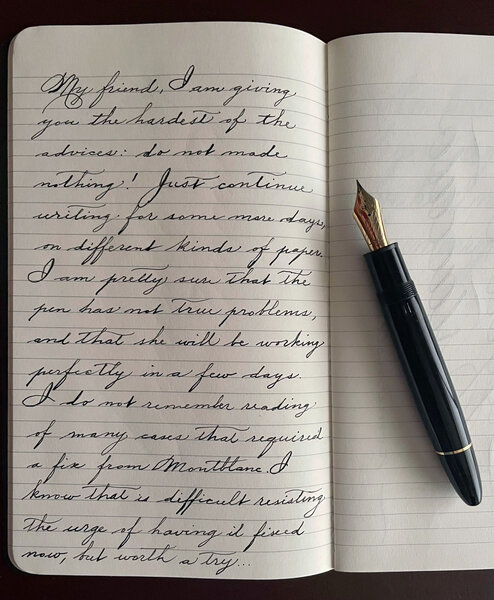 My friend, I am giving
you the hardest of the
advices: do not made
nothing! Just continue
writing for some more days,
on different kinds of paper.
I am pretty sure that the
pen has not true problems,
and that she will be working
perfectly in a few days.
I do not remember reading
of many cases that required
a fix from Montblanc. I
know that is difficult resisting
the urge of having it fixed
now, but worth a try...